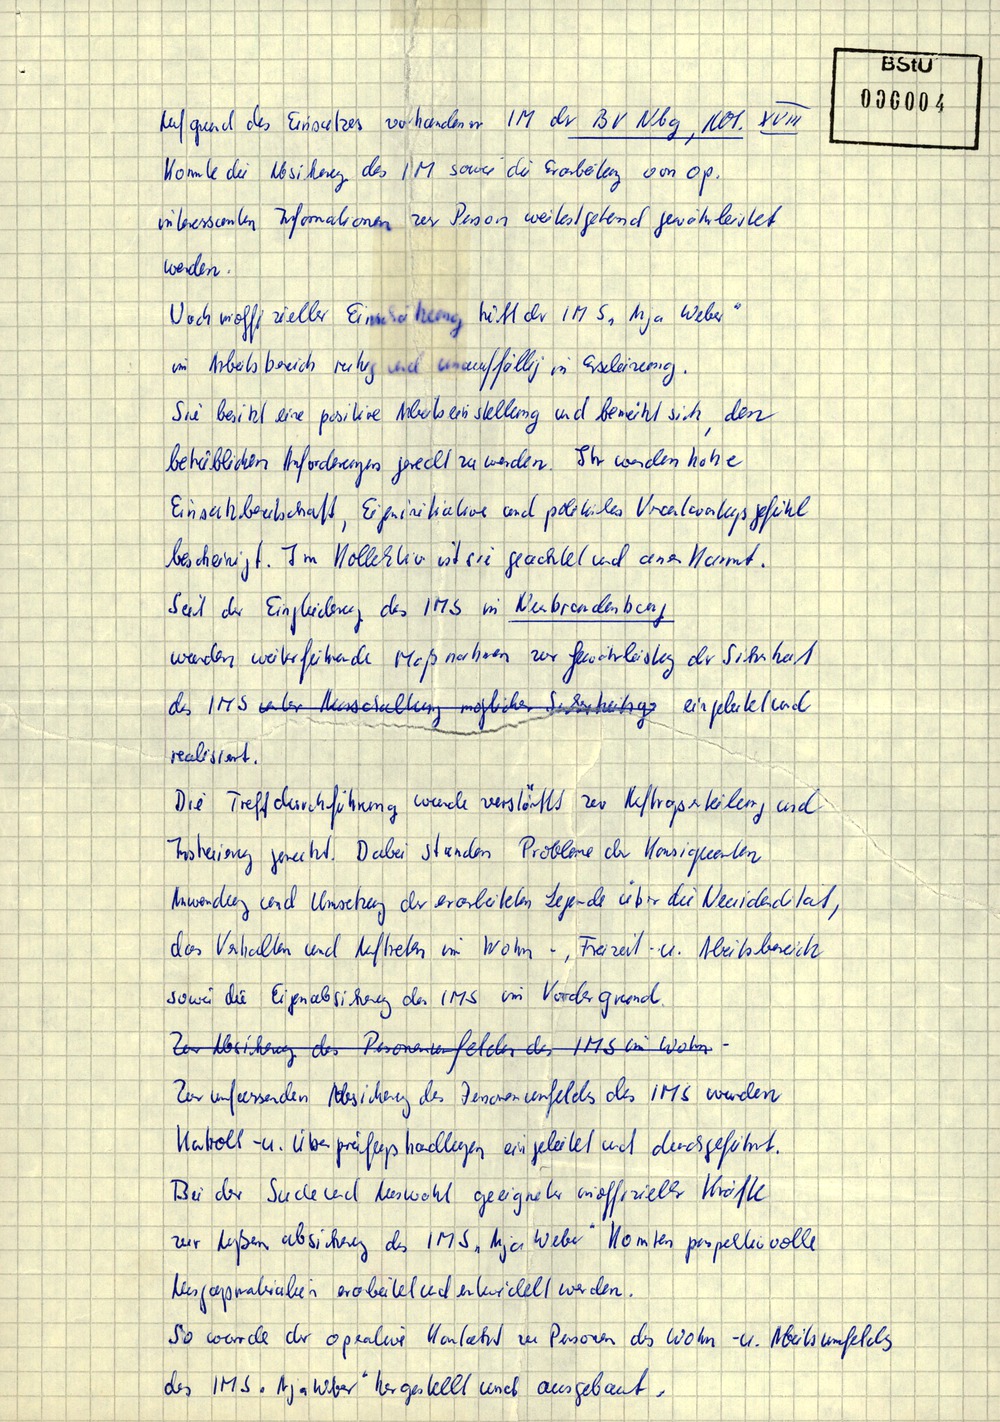 BStU
000004
Aufgrund des Einsatzes vorhandener IM der BV Nbg, Abt. XVIII
konnte die Absicherung des IM sowie die Erarbeitung von op.
interessanten Informationen zur Person weitestgehend gewährleistet
werden.
Nach inoffizieller Einschätzung tritt der IMS „Anja Weber"
im Arbeitsbereich ruhig und unauffällig in Erscheinung.
Sie besitzt eine positive Arbeitseinstellung und bemüht sich, den
betrieblichen Anforderungen gerecht zu werden. Ihr werden hohe
Einsatzbereitschaft, Eigeninitiative und politisches Verantwortungsgefühl
bescheinigt. Im Kollektiv ist sie geachtet und anerkannt.
Seit der Eingliederung des IMS in Neubrandenburg
wurden weiterführende Maßnahmen zur Gewährleistung der Sicherheit
des IMS unter Ausschaltung möglicher eingeleitet und
realisiert.
Die Treffdurchführung wurde verstärkt zur Auftragserteilung und
Instruierung genutzt. Dabei standen Probleme der konsequenten
Anwendung und Umsetzung der erarbeiteten Legende über die Neuidentität,
das Verhalten und Auftreten im Wohn-, Freizeit- u. Arbeitsbereich
sowie die Eigenabsicherung des IMS im Vordergrund.
Zur Absicherung des Personenumfeldes des IMS im Wohn-
Zur umfassenden Absicherung des Personenumfelds des IMS wurden
Kontroll- u. Überprüfungshandlungen eingeleitet und durchgeführt.
Bei der Suche und Auswahl geeigneter inoffizieller Kräfte
zur Außenabsicherung des IMS „Anja Weber" konnten perspektivvolle
Ausgangsmaterialien erarbeitet und entwickelt werden.
So wurde der operative Kontakt zu Personen des Wohn- u. Arbeitsumfelds
des IMS „Anja Weber" hergestellt und ausgebaut.